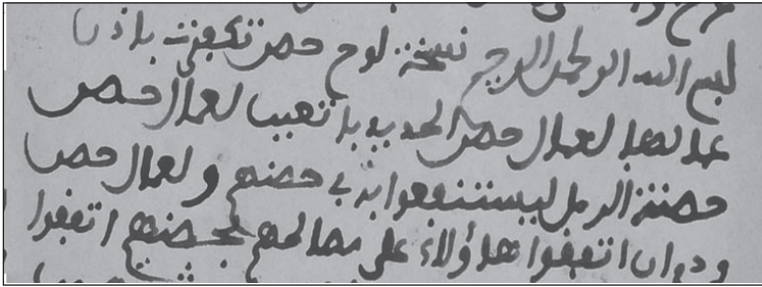 بسم الله الرحمن الرحيم نسخة لوح حصن باذن
عمالها لعمال حصن الحديد لعمال حصن
حصنة الرمل ليستنفعوا به في حصنهم ولعمال حصن
اتفقوا هاؤلاء على مصالحهم لحصنهم اتفقوا